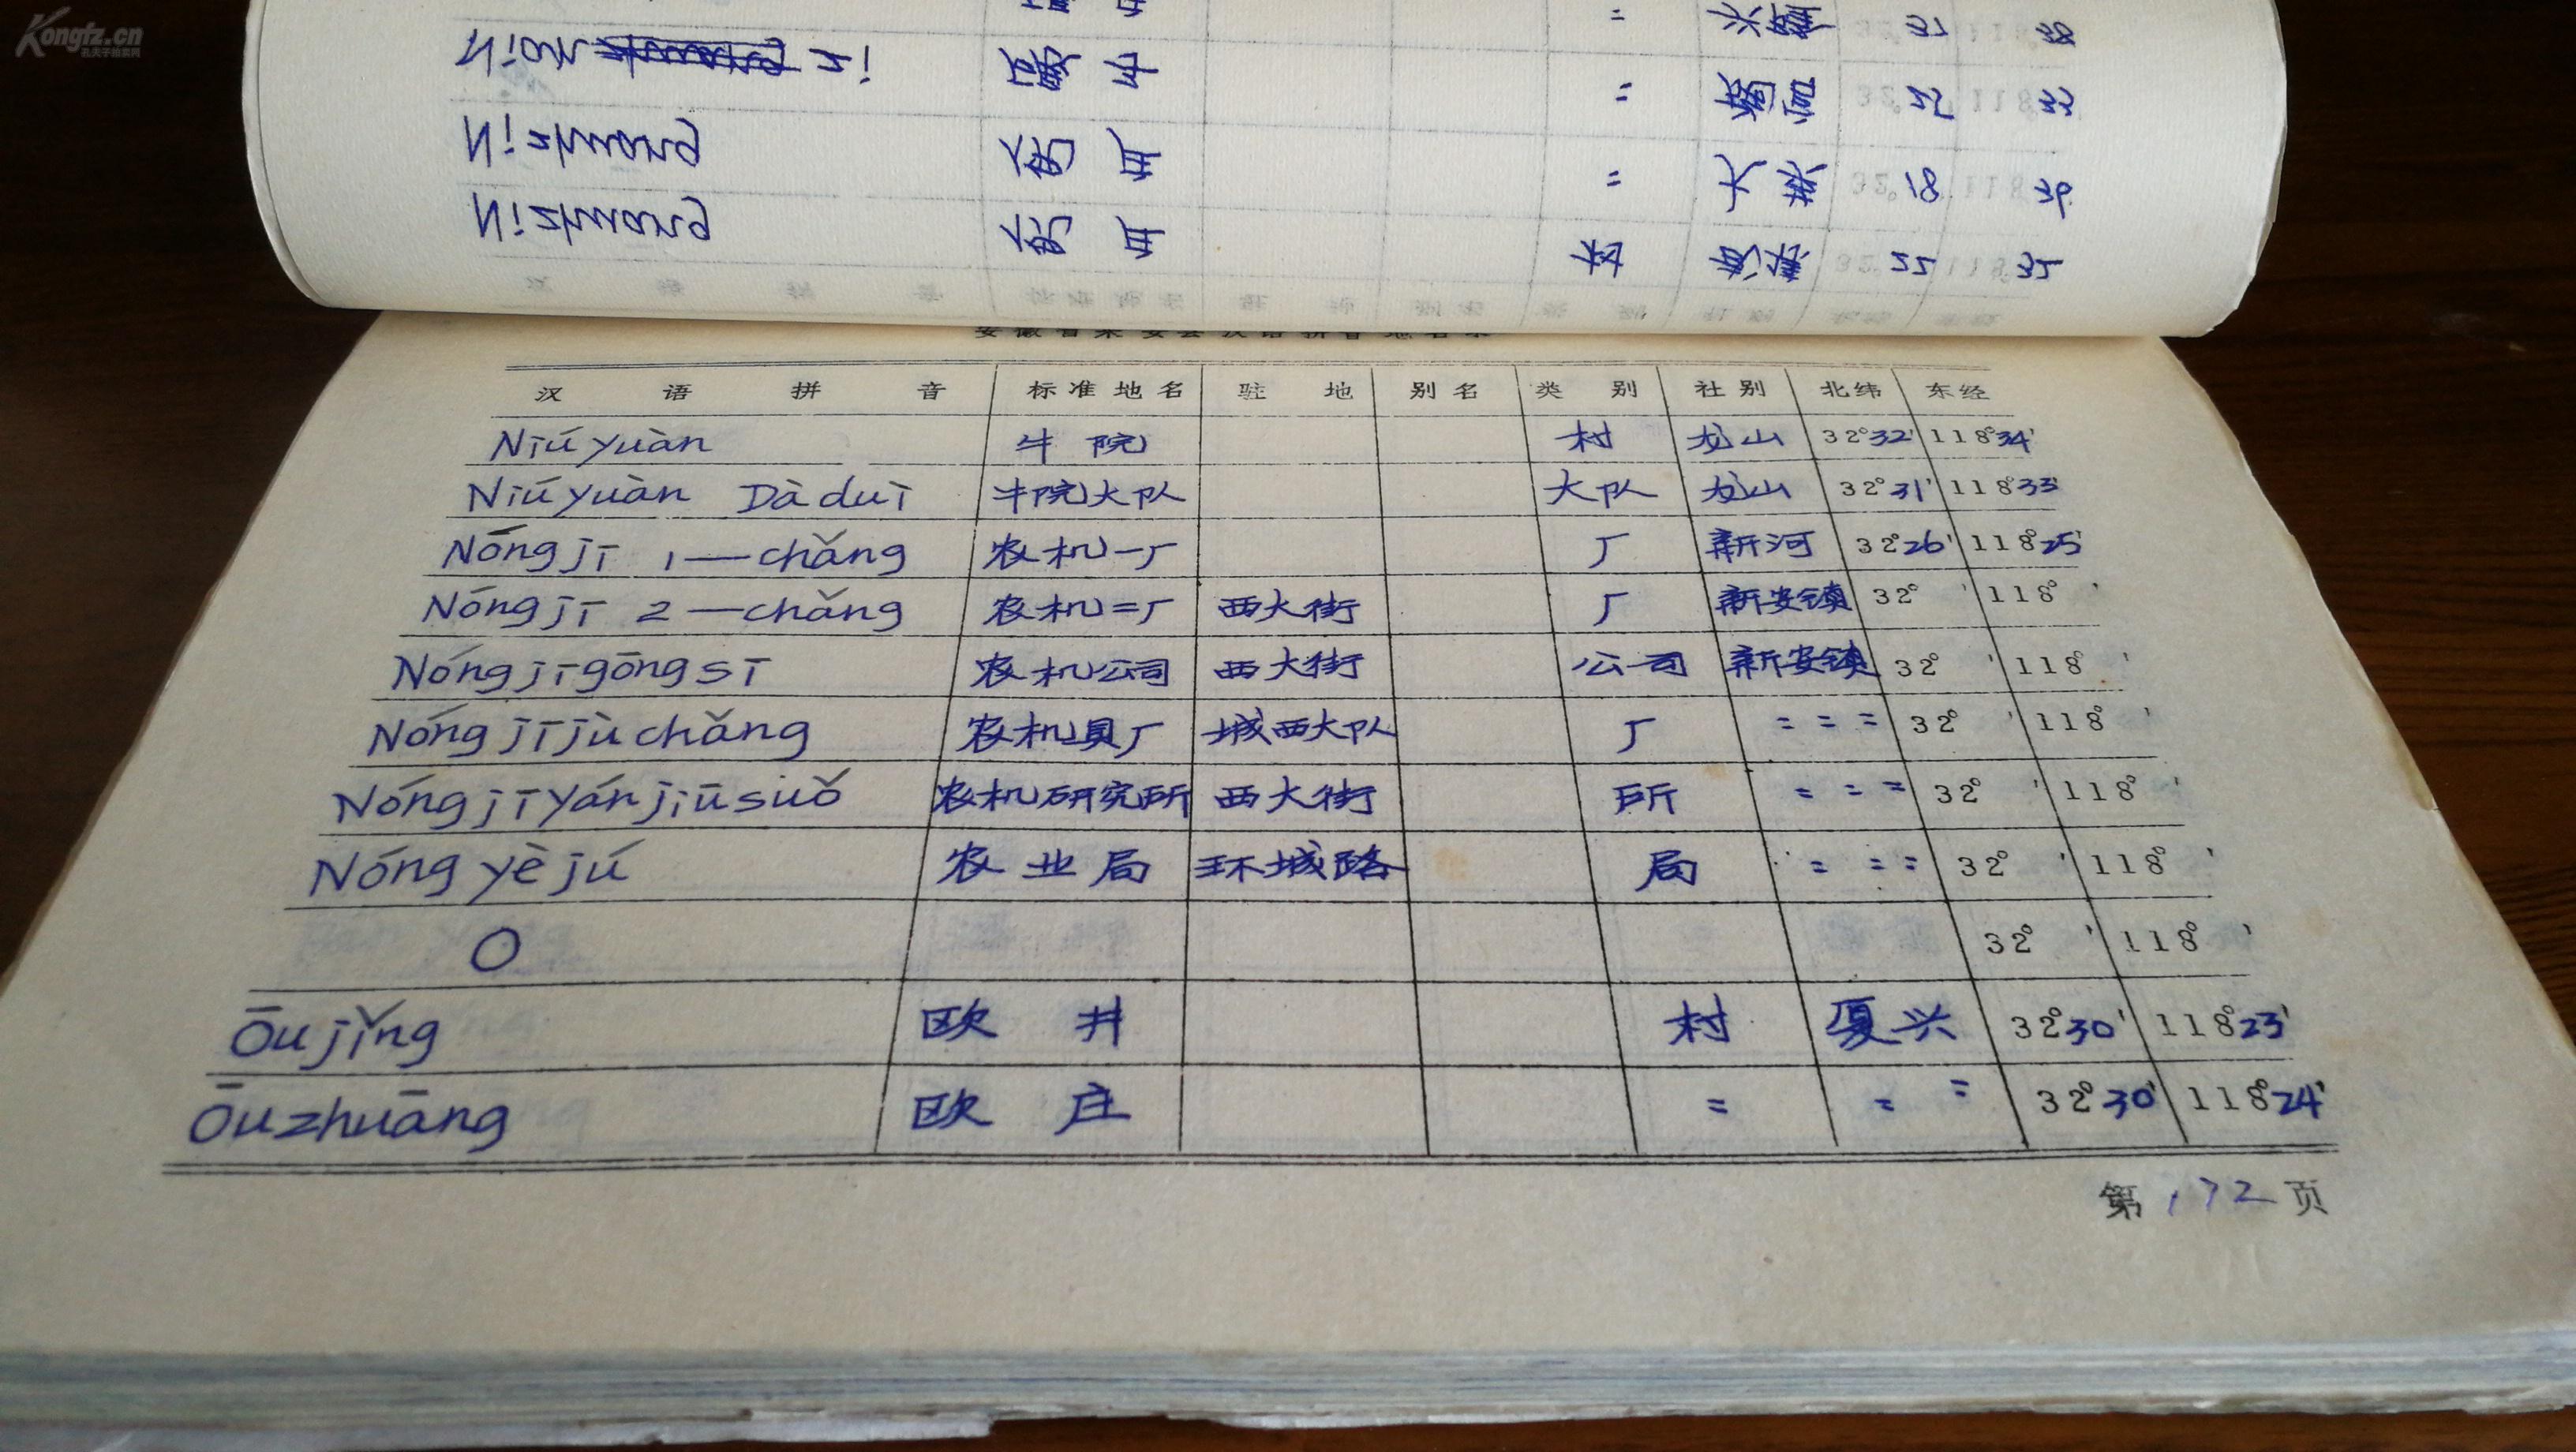 Kongfz.cn
孔夫子旧书网
Nizhuang
Nizhuang
村 32° 22 118° 32
大英 32° 18 118° 39
32° 25 118° 33
安徽省来安县汉语拼音地名录
汉语拼音 标准地名 驻地 别名 类别 社别 北纬 东经
Niúyuàn 牛院 村 龙山 32°32' 118°34'
Niúyuàn Dàduì 牛院大队 大队 龙山 32°31' 118°33'
Nóngjī 1—chǎng 农机一厂 厂 新河 32°26' 118°25'
Nóngjī 2—chǎng 农机二厂 西大街 厂 新安镇 32° ' 118° '
Nóngjīgōngsī 农机公司 西大街 公司 新安镇 32° ' 118° '
Nóngjījùchǎng 农机具厂 城西大队 厂 = = = 32° ' 118° '
Nóngjīyánjiūsuǒ 农机研究所 西大街 所 = = = 32° ' 118° '
Nóngyèjú 农业局 环城路 局 = = = 32° ' 118° '
O 32° ' 118° '
Ōujǐng 欧井 村 复兴 32°30' 118°23'
Ōuzhuāng 欧庄 = = = 32°30' 118°24'
第172页